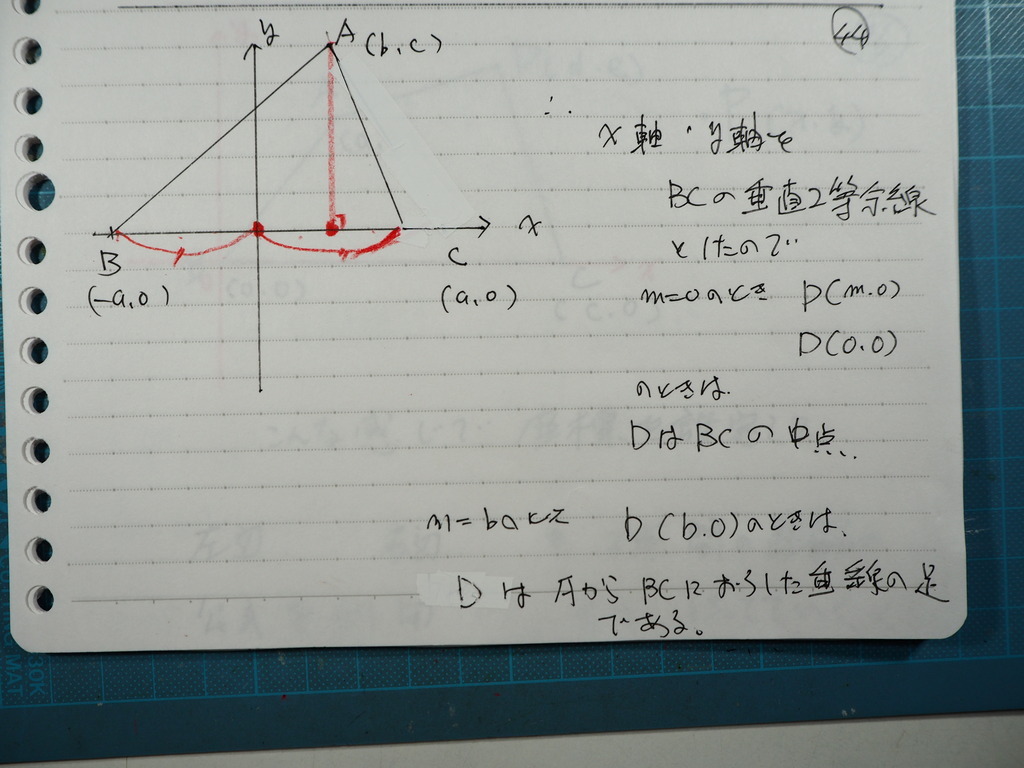 44
y
A (b,c)
∴
x軸・y軸を
BCの垂直2等分線
としたので
x
B
C
(-a,0)
(a,0)
m=0のとき D(m.0)
D(0.0)
のときは.
DはBCの中点.
m=bのとき D(b.0)のときは、
DはAからBCにおろした垂線の足
である。